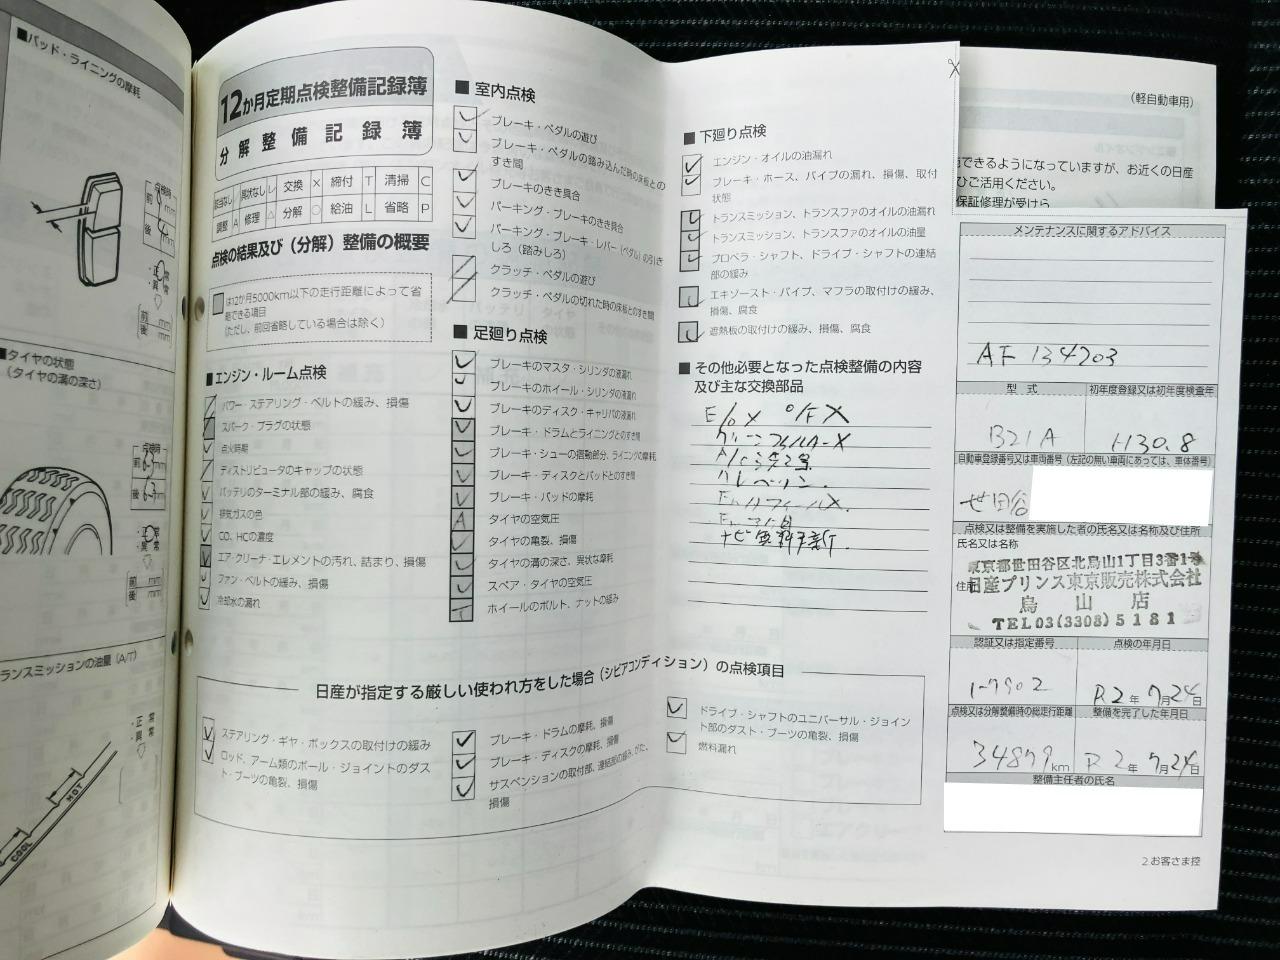 ■パッド・ライニングの摩耗
■タイヤの状態
(タイヤの溝の深さ)
ランスミッションの油量(A/T)
HOT
COOL
12か月定期点検整備記録簿
分解整備記録簿
該当なし 異状なし レ 交換 × 締付 T 清掃 C
調整 A 修理 △ 分解 ○ 給油 L 省略 P
点検の結果及び(分解)整備の概要
は12か月5000km以下の走行距離によって省
略できる項目
(ただし、前回省略している場合は除く)
■エンジン・ルーム点検
パワー・ステアリング・ベルトの緩み、損傷
スパーク・プラグの状態
点火時期
ディストリビュータのキャップの状態
バッテリのターミナル部の緩み、腐食
排気ガスの色
CO、HCの濃度
エア・クリーナ・エレメントの汚れ、詰まり、損傷
ファン・ベルトの緩み、損傷
冷却水の漏れ
■室内点検
ブレーキ・ペダルの遊び
ブレーキ・ペダルの踏み込んだ時の床板との
すき間
ブレーキのきき具合
パーキング・ブレーキのきき具合
パーキング・ブレーキ・レバー(ペダル)の引き
しろ(踏みしろ)
クラッチ・ペダルの遊び
クラッチ・ペダルの切れた時の床板とのすき間
■足廻り点検
ブレーキのマスタ・シリンダの液漏れ
ブレーキのホイール・シリンダの液漏れ
ブレーキのディスク・キャリパの液漏れ
ブレーキ・ドラムとライニングとのすき間
ブレーキ・シューの摺動部分、ライニングの摩耗
ブレーキ・ディスクとパッドとのすき間
ブレーキ・パッドの摩耗
A タイヤの空気圧
タイヤの亀裂、損傷
タイヤの溝の深さ、異状な摩耗
スペア・タイヤの空気圧
T ホイールのボルト、ナットの緩み
■下廻り点検
エンジン・オイルの油漏れ
ブレーキ・ホース、パイプの漏れ、損傷、取付
状態
トランスミッション、トランスファのオイルの油漏れ
トランスミッション、トランスファのオイルの油量
プロペラ・シャフト、ドライブ・シャフトの連結
部の緩み
エキゾースト・パイプ、マフラの取付けの緩み、
損傷、腐食
遮熱板の取付けの緩み、損傷、腐食
■その他必要となった点検整備の内容
及び主な交換部品
E/O X O/F X
日産が指定する厳しい使われ方をした場合(シビアコンディション)の点検項目
ステアリング・ギヤ・ボックスの取付けの緩み
ロッド、アーム類のボール・ジョイントのダス
ト・ブーツの亀裂、損傷
ブレーキ・ドラムの摩耗、損傷
ブレーキ・ディスクの摩耗、損傷
サスペンションの取付部、連結部の緩み、がた、
損傷
ドライブ・シャフトのユニバーサル・ジョイン
ト部のダスト・ブーツの亀裂、損傷
燃料漏れ
(軽自動車用)
できるようになっていますが、お近くの日産
ひご活用ください。
保証修理が受けら
メンテナンスに関するアドバイス
AF 134203
型式 初年度登録又は初年度検査年
B21A H30.8
自動車登録番号又は車両番号(左記の無い車両にあっては、車体番号)
世田谷
点検又は整備を実施した者の氏名又は名称及び住所
氏名又は名称
東京都世田谷区北烏山1丁目3番1号
住所
日産プリンス東京販売株式会社
烏山店
TEL03(3308)5181
認証又は指定番号 点検の年月日
1-7902 R2年7月24日
点検又は分解整備時の総走行距離 整備を完了した年月日
34879km R2年7月24日
整備主任者の氏名
2お客さま控